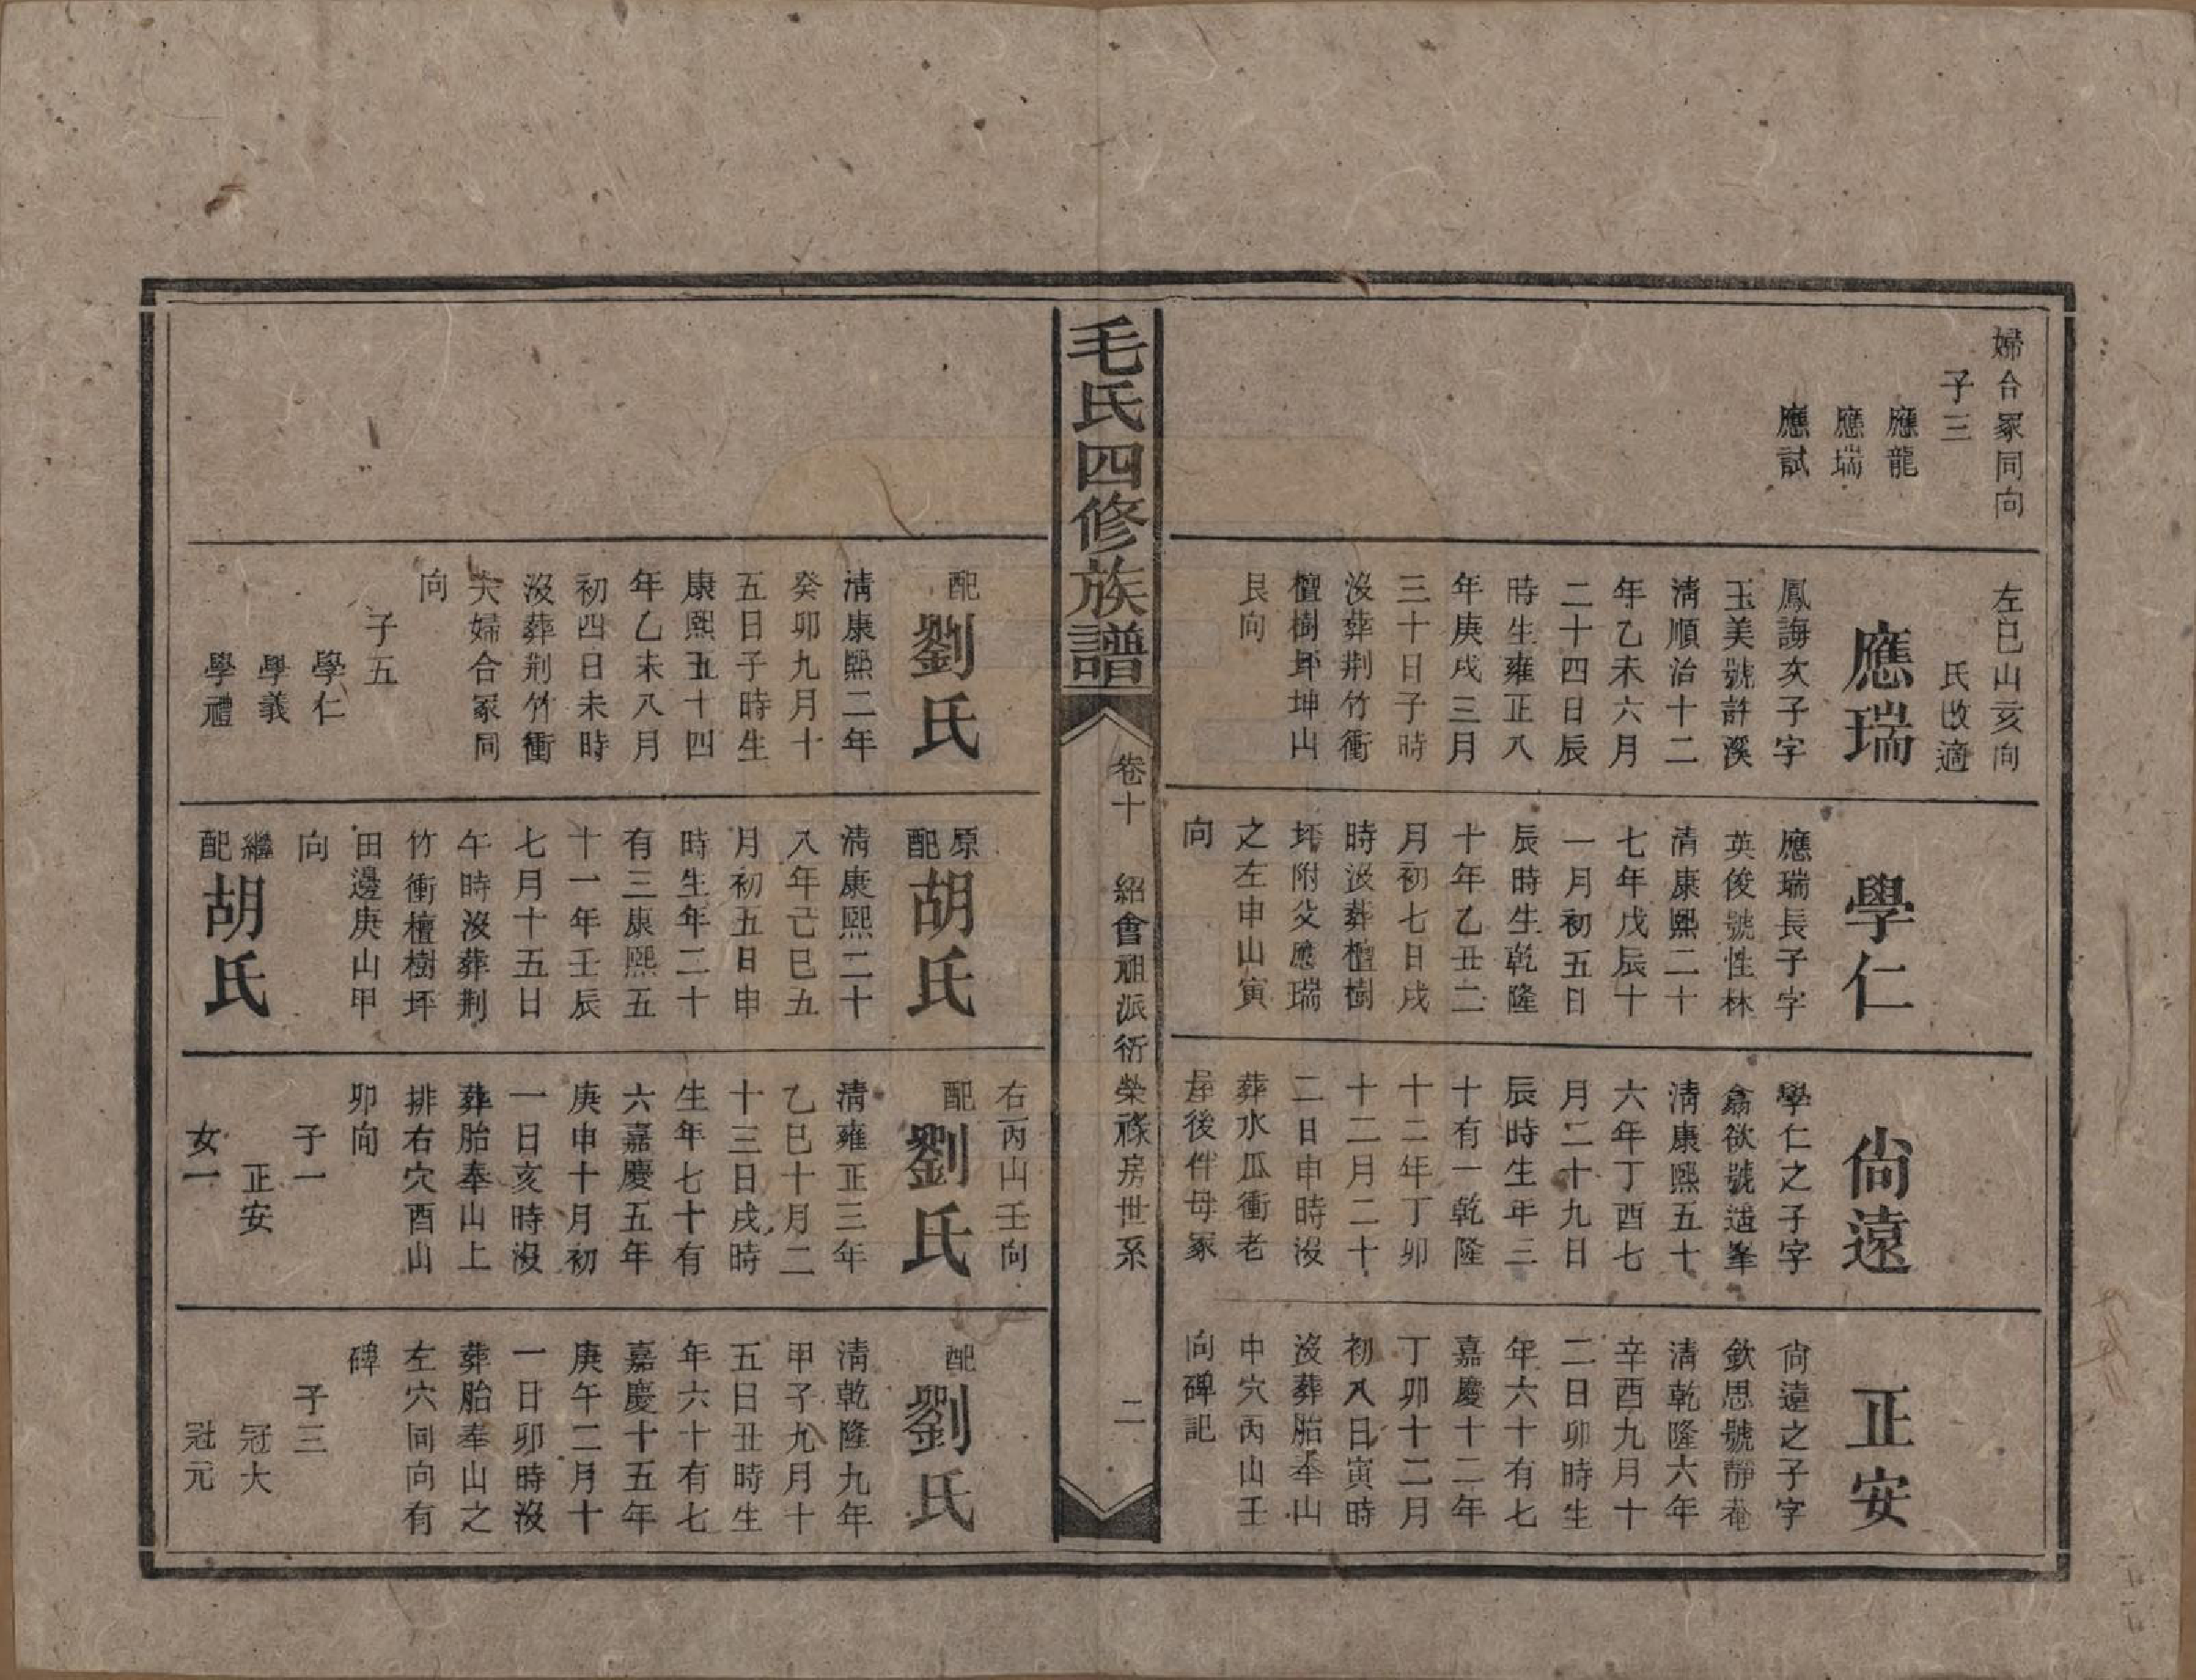 婦合冢同向
子三
應龍
應瑞
應試
左巳山亥向
氏改適
應瑞
鳳誨次子字
玉美號許溪
清順治十二
年乙未六月
二十四日辰
時生雍正八
年庚戌三月
三十日子時
沒葬荆竹衝
檀樹坪坤山
艮向
學仁
應瑞長子字
英俊號性林
清康熙二十
七年戊辰十
一月初五日
辰時生乾隆
十年乙丑二
月初七日戌
時沒葬檀樹
坪附父應瑞
之左申山寅
向
尙遠
學仁之子字
翕欲號适峯
清康熙五十
六年丁酉七
月二十九日
辰時生年三
十有一乾隆
十二年丁卯
十二月二十
二日申時沒
葬水瓜衝老
屋後伴母冢
正安
尙遠之子字
欽思號靜菴
清乾隆六年
辛酉九月十
二日卯時生
年六十有七
嘉慶十二年
丁卯十二月
初八日寅時
沒葬胎奉山
中穴丙山壬
向碑記
毛氏四修族譜
卷十 紹會祖派衍榮祿房世系 二
配
劉氏
清康熙二年
癸卯九月十
五日子時生
康熙五十四
年乙未八月
初四日未時
沒葬荆竹衝
夫婦合冢同
向
子五
學仁
學義
學禮
原配
胡氏
清康熙二十
八年己巳五
月初五日申
時生年二十
有三康熙五
十一年壬辰
七月十五日
午時沒葬荆
竹衝檀樹坪
田邊庚山甲
向
繼配
胡氏
右丙山壬向
配
劉氏
清雍正三年
乙巳十月二
十三日戌時
生年七十有
六嘉慶五年
庚申十月初
一日亥時沒
葬胎奉山上
排右穴酉山
卯向
子一
正安
女一
配
劉氏
清乾隆九年
甲子九月十
五日丑時生
年六十有七
嘉慶十五年
庚午二月十
一日卯時沒
葬胎奉山之
左穴同向有
碑
子三
冠大
冠元